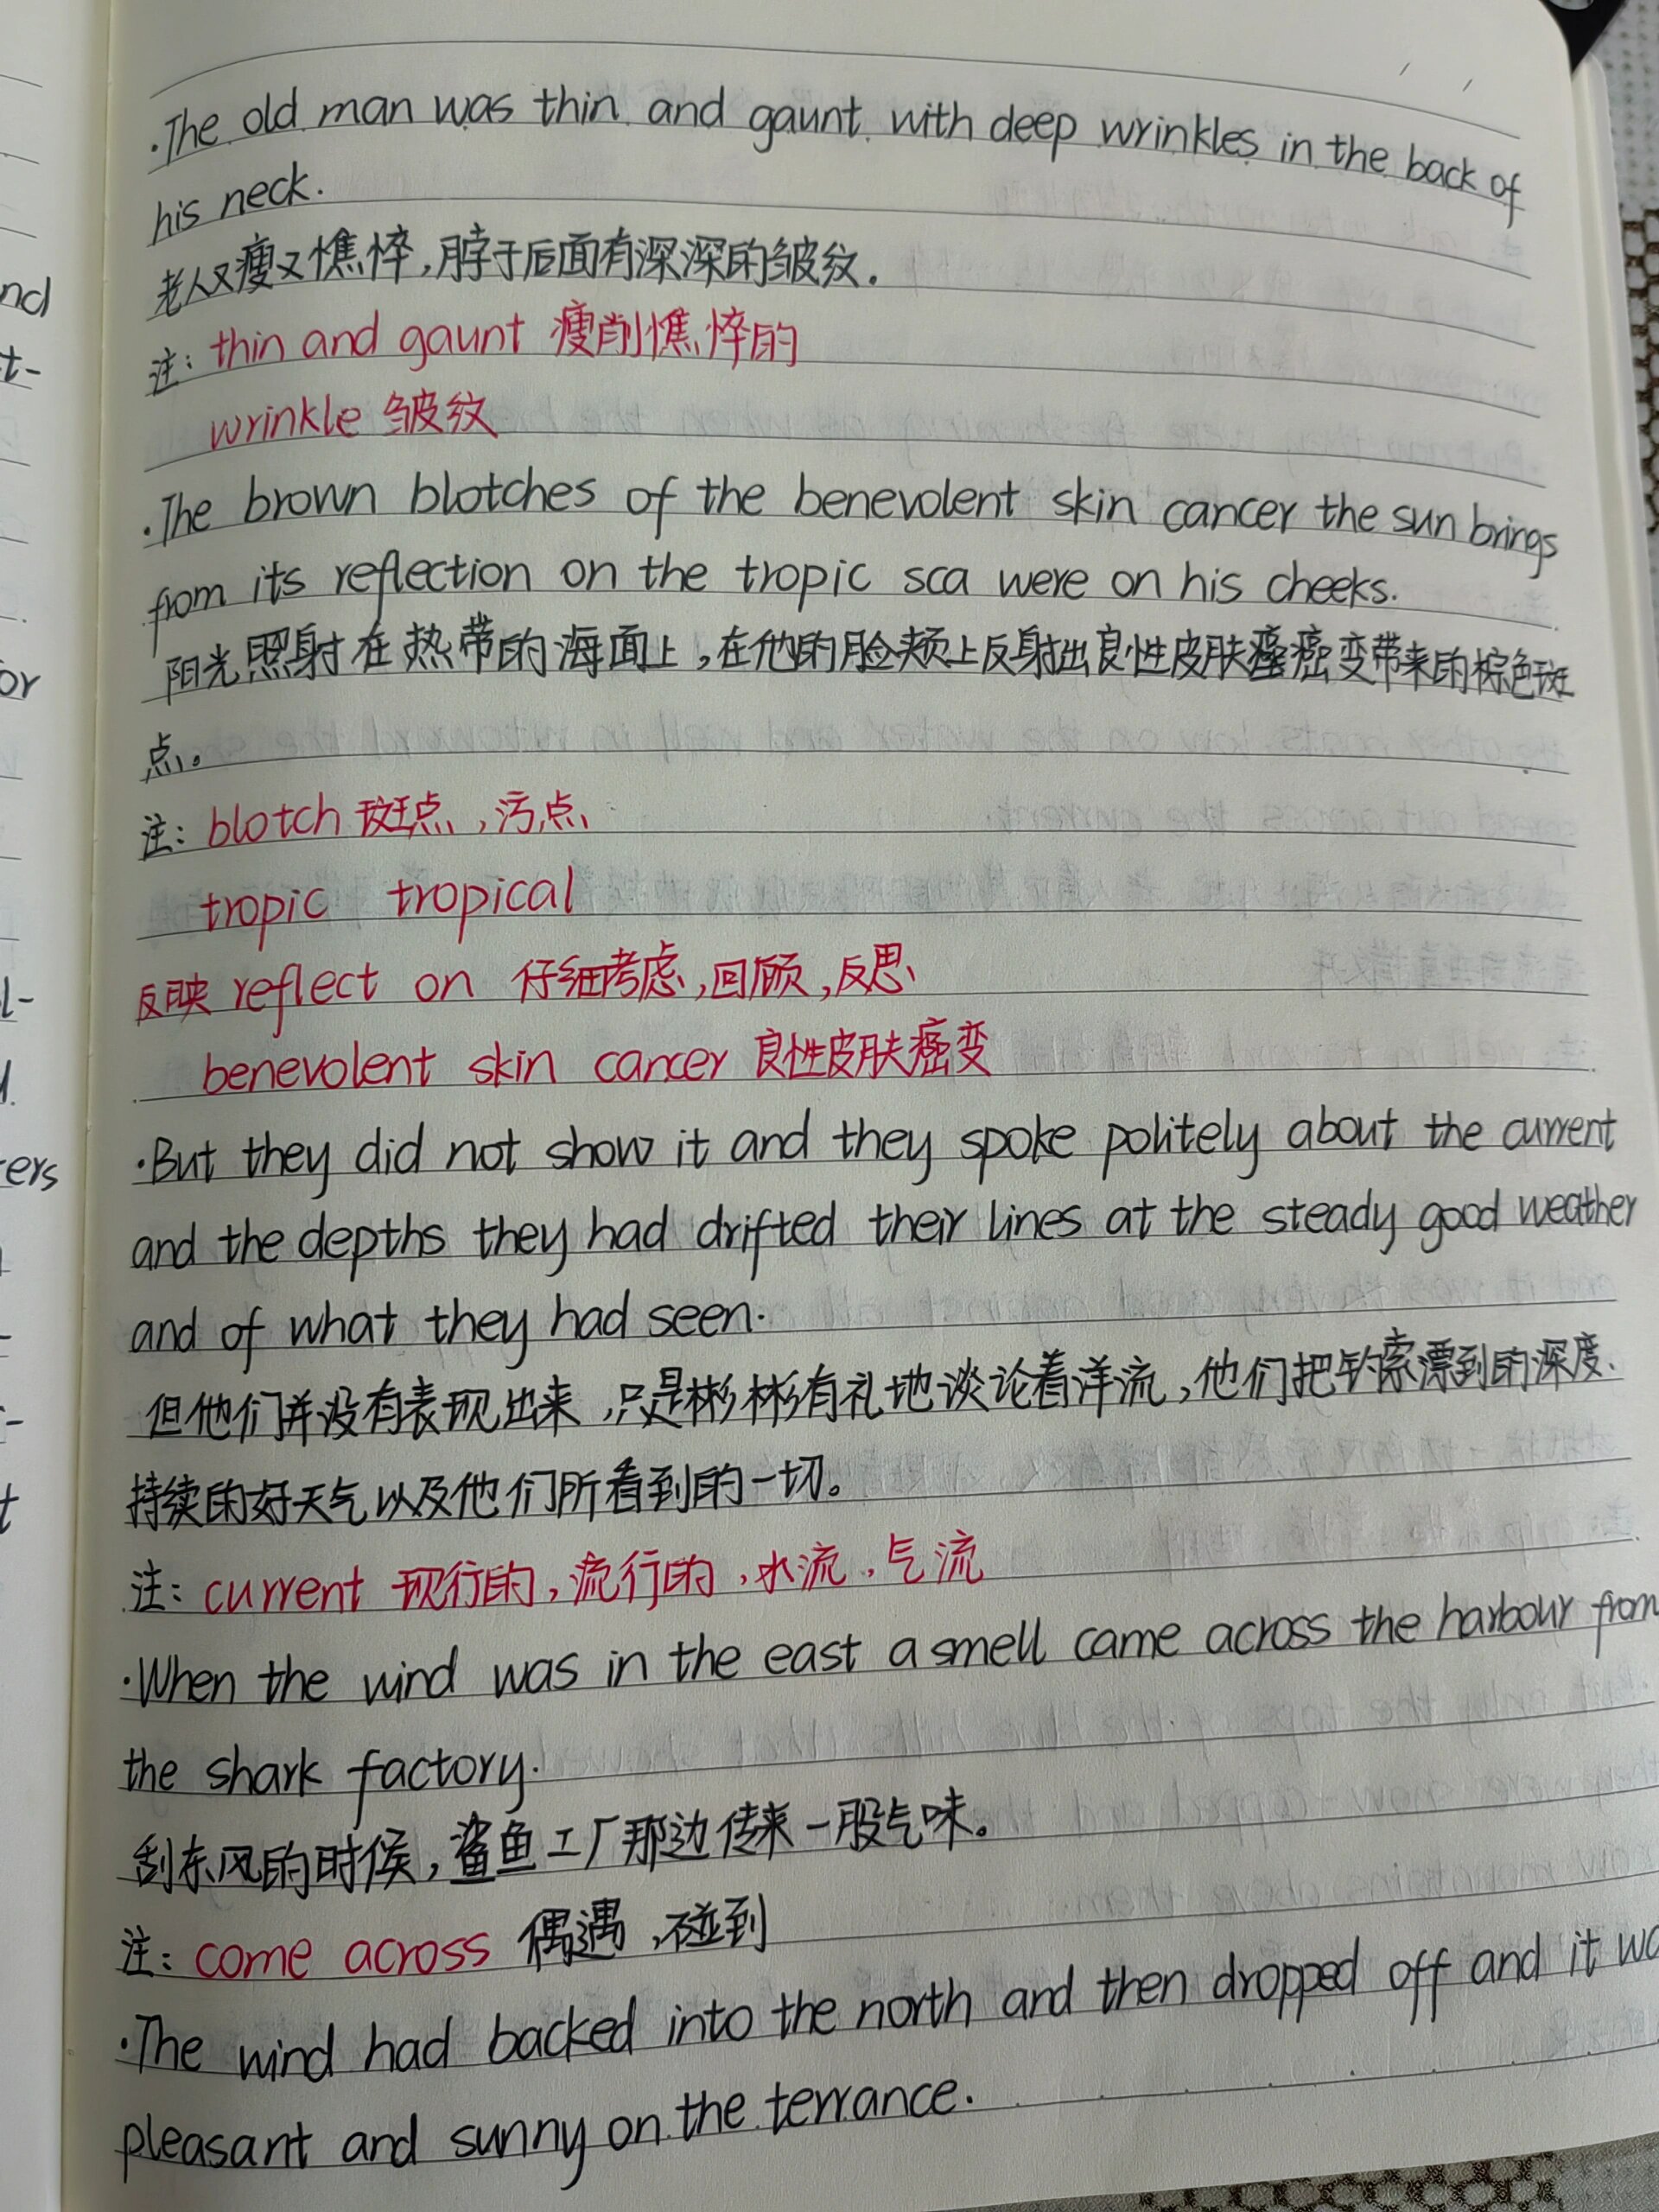 ·The old man was thin and gaunt with deep wrinkles in the back of
his neck.
老人又瘦又憔悴,脖子后面有深深的皱纹.
注: thin and gaunt 瘦削憔悴的
wrinkle 皱纹
·The brown blotches of the benevolent skin cancer the sun brings
from its reflection on the tropic sca were on his cheeks.
阳光照射在热带的海面上,在他的脸颊上反射出良性皮肤癌变带来的棕色斑
点。
注: blotch 斑点,污点
tropic tropical
反映 reflect on 仔细考虑,回顾,反思
benevolent skin cancer 良性皮肤癌变
·But they did not show it and they spoke politely about the current
and the depths they had drifted their lines at the steady good weather
and of what they had seen.
但他们并没有表现出来,只是彬彬有礼地谈论着洋流,他们把钓索漂到的深度、
持续的好天气以及他们所看到的一切。
注: current 现行的,流行的,水流,气流
·When the wind was in the east a smell came across the harbour from
the shark factory.
刮东风的时候,鲨鱼工厂那边传来一股气味。
注: come across 偶遇,碰到
·The wind had backed into the north and then dropped off and it wa
pleasant and sunny on the terrance.
nd
t-
or
l-
d.
ers
t